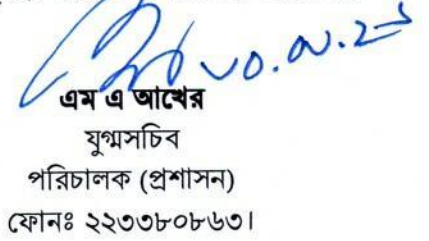 এম এ আখের
যুগ্মসচিব
পরিচালক (প্রশাসন)
ফোনঃ ২২৩৩৮০৮৬৩।